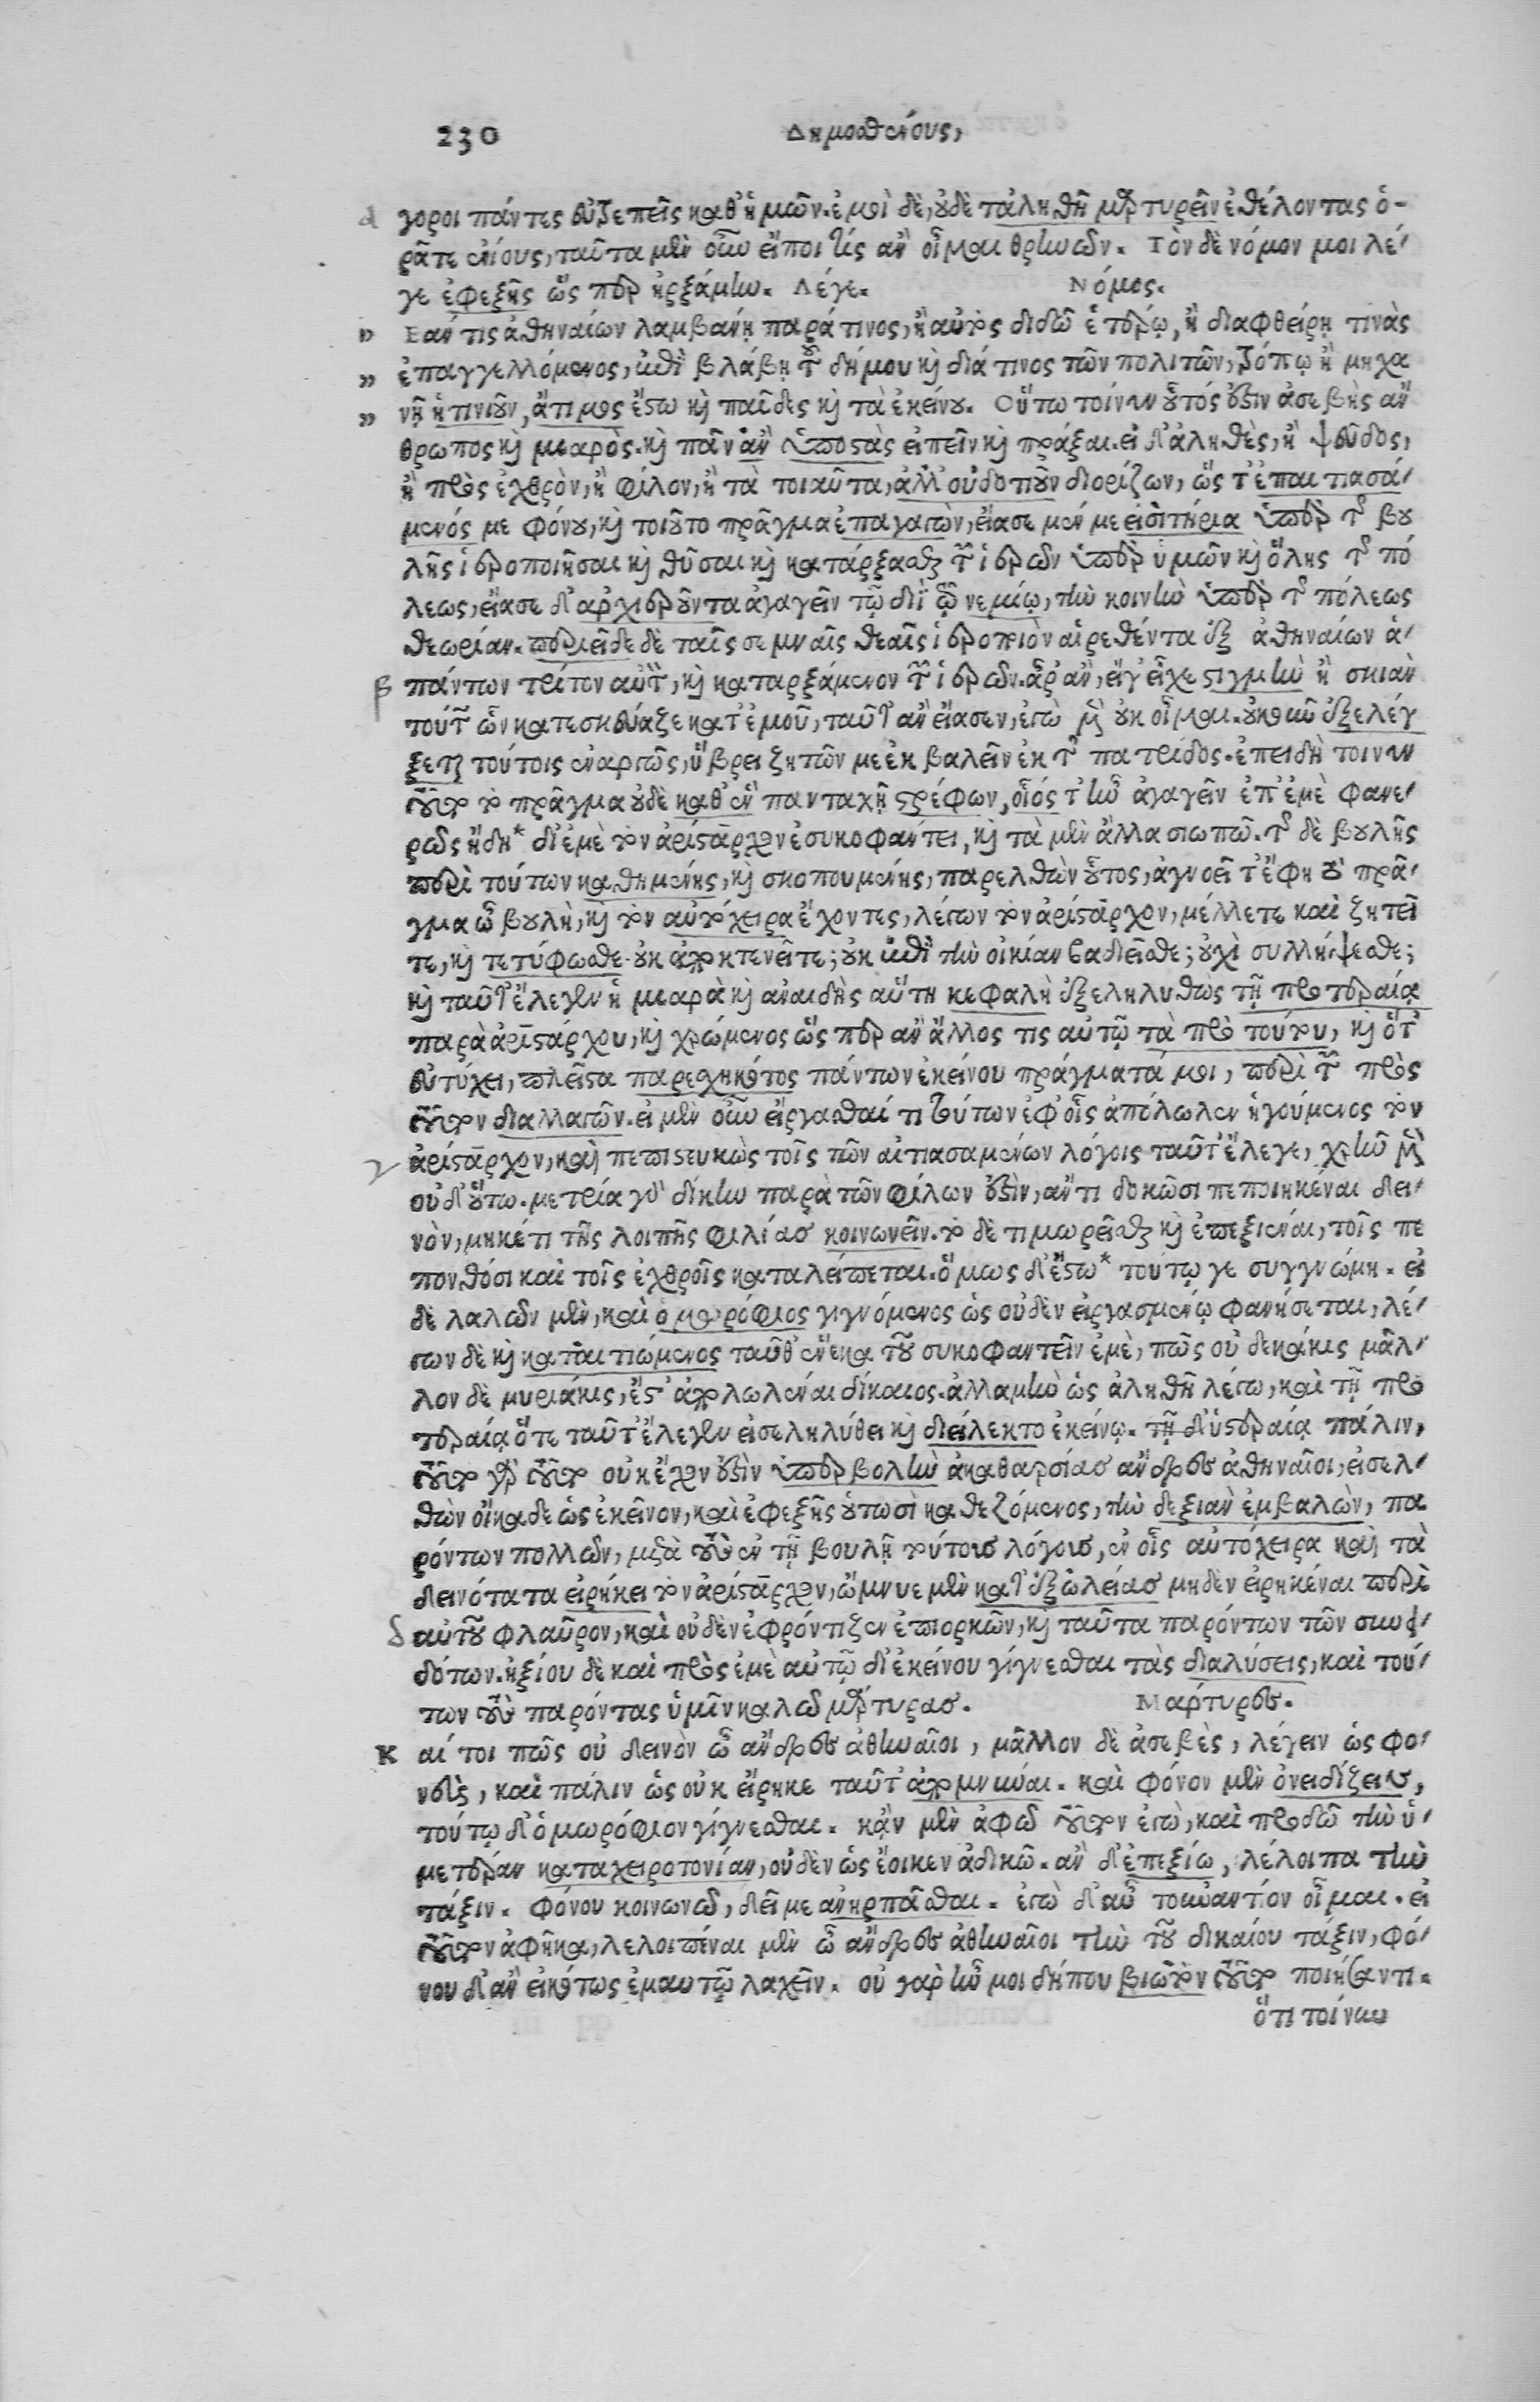 230 Δημοσθένους,
γοροι πάντες εὐτρεπεῖς καθ' ἡμῶν. ἐμοὶ δὲ, οὐδὲ τἀληθῆ μαρτυρεῖν ἐθέλοντας ὁ-
ρᾶτε ἐνίους, ταῦτα μὲν οὖν εἴποι τίς ἂν οἶμαι θρηνῶν. Τὸν δὲ νόμον μοι λέ-
γε ἐφεξῆς ὥς περ ἠρξάμην. Λέγε. Νόμος.
" Εάν τις ἀθηναίων λαμβανῃ παρά τινος, ἢ αὐτὸς διδῶ ἑτέρῳ, ἢ διαφθείρῃ τινὰς
" ἐπαγγελλόμενος, ἐπὶ βλάβῃ τοῦ δήμου καὶ διά τινος τῶν πολιτῶν, τρόπῳ ἢ μηχα
" νῇ ἡτινιοῦν, ἄτιμος ἔστω καὶ παῖδες καὶ τὰ ἐκείνου. Οὕτω τοίνυν οὗτός ἐστιν ἀσεβὴς ἄν
θρωπος καὶ μιαρὸς. καὶ πᾶν ἂν ὑποστὰς εἰπεῖν καὶ πράξαι. εἰ δ' ἀληθὲς, ἢ ψεῦδος,
ἢ πρὸς ἐχθρὸν, ἢ φίλον, ἢ τὰ τοιαῦτα, ἀλλ' οὐδοτιοῦν διορίζων, ὥς τ' ἐπαιτιασά-
μενός με φόνου, καὶ τοιοῦτο πρᾶγμα ἐπαγαγὼν, εἴασε μέν με εἰσιτήρια ὑπὲρ τῆς βου
λῆς ἱεροποιῆσαι καὶ θῦσαι καὶ κατάρξασθαι τῶν ἱερῶν ὑπὲρ ὑμῶν καὶ ὅλης τῆς πό
λεως, εἴασε δ' ἀρχιερῦντα ἀγαγεῖν τῷ διῒ τῷ νεμίῳ, τὴν κοινὴν ὑπὲρ τῆς πόλεως
θεωρίαν. περιεῖδε δὲ ταῖς σεμναῖς θεαῖς ἱεροποιὸν αἱρεθέντα ἐξ ἀθηναίων ἁ-
πάντων τρίτον αὐτὸν, καὶ καταρξάμενον τῶν ἱερῶν. ἆρ' ἂν, εἴγ' εἶχε στιγμὴν ἢ σκιὰν
τούτων ὧν κατεσκεύαζε κατ' ἐμοῦ, ταῦτ' ἂν εἴασεν, ἐγὼ μὲν οὐκ οἶμαι. οὐκοῦν ἐξελέγ
ξεται τούτοις ἐναργῶς, ὕβρει ζητῶν με ἐκβαλεῖν ἐκ τῆς πατρίδος. ἐπειδὴ τοίνυν
τοῦτο τὸ πρᾶγμα οὐδὲ καθ' ἓν πανταχῇ στρέφων, οἷός τ' ἦν ἀγαγεῖν ἐπ' ἐμὲ φανε-
ρῶς ἤδη* δι' ἐμὲ τὸν ἀρίσταρχον ἐσυκοφάντει, καὶ τὰ μὲν ἄλλα σιωπῶ. τῆς δὲ βουλῆς
περὶ τούτων καθημένης, καὶ σκοπουμένης, παρελθὼν οὗτος, ἀγνοεῖτ' ἔφη τὸ πρᾶ-
γμα ὦ βουλὴ, καὶ τὸν αὐτόχειρα ἔχοντες, λέγων τὸν ἀρίσταρχον, μέλλετε καὶ ζητεῖ
τε, καὶ τετύφωσθε. οὐκ ἀποκτενεῖτε; οὐκ ἐπὶ τὴν οἰκίαν βαδιεῖσθε; οὐχὶ συλλήψεσθε;
καὶ ταῦτ' ἔλεγεν ἡ μιαρὰ καὶ ἀναιδὴς αὕτη κεφαλὴ ἐξεληλυθὼς τῇ προτεραίᾳ
παρὰ ἀριστάρχου, καὶ χρώμενος ὥς περ ἂν ἄλλος τις αὐτῷ τὰ πρὸ τούτου, καὶ ὅτ'
εὐτύχει, πλεῖστα παρεσχηκότος πάντων ἐκείνου πράγματά μοι, περὶ τῶν πρὸς
τοῦτον διαλλαγῶν. εἰ μὲν οὖν εἰργάσθαί τι τούτων ἐφ' οἷς ἀπόλωλεν ἡγούμενος τὸν
ἀρίσταρχον, καὶ πεπιστευκὼς τοῖς τῶν αἰτιασαμένων λόγοις ταῦτ' ἔλεγε, χρῆν μὲν
οὐδ' οὕτω. μετρία γὰρ δίκην παρὰ τῶν φίλων ἐστὶν, ἄν τι δοκῶσι πεποιηκέναι δει-
νὸν, μηκέτι τῆς λοιπῆς φιλίας κοινωνεῖν. τὸ δὲ τιμωρεῖσθαι καὶ ἐπεξιέναι, τοῖς πε
πονθόσι καὶ τοῖς ἐχθροῖς καταλείπεται. ὅμως δ' ἔστω* τούτῳ γε συγγνώμη. εἰ
δὲ λαλῶν μὲν, καὶ ὁμωρόφιος γιγνόμενος ὡς οὐδὲν εἰργασμένῳ φανήσεται, λέ-
γων δὲ καὶ καταιτιώμενος ταῦθ' ἕνεκα τοῦ συκοφαντεῖν ἐμὲ, πῶς οὐ δεκάκις μᾶλ-
λον δὲ μυριάκις, ἔστ' ἀπολωλέναι δίκαιος. ἀλλαμὴν ὡς ἀληθῆ λέγω, καὶ τῇ προ
τεραίᾳ ὅτε ταῦτ' ἔλεγεν εἰσεληλύθει καὶ διείλεκτο ἐκείνῳ. τῇ δ' ὑστεραίᾳ πάλιν,
τοῦτο γὰρ τοῦτο οὐκ ἔχον ἐστὶν ὑπερβολὴν ἀκαθαρσίας ἄνδρες ἀθηναῖοι, εἰσελ-
θὼν οἴκαδε ὡς ἐκεῖνον, καὶ ἐφεξῆς οὑτωσὶ καθεζόμενος, τὴν δεξιὰν ἐμβαλὼν, πα
ρόντων πολλῶν, μετὰ τοὺς ἐν τῇ βουλῇ τούτοις λόγοις, ἐν οἷς αὐτόχειρα καὶ τὰ
δεινότατα εἰρήκει τὸν ἀρίσταρχον, ὤμνυε μὲν κατ' ἐξωλείας μηδὲν εἰρηκέναι περὶ
αὐτοῦ φλαῦρον, καὶ οὐδὲν ἐφρόντιζεν ἐπιορκῶν, καὶ ταῦτα παρόντων τῶν συνει-
δότων. ἠξίου δὲ καὶ πρὸς ἐμὲ αὐτῷ δι' ἐκείνου γίγνεσθαι τὰς διαλύσεις, καὶ τού-
των τοὺς παρόντας ὑμῖν καλῶ μάρτυρας. Μάρτυρες.
Καί τοι πῶς οὐ δεινὸν ὦ ἄνδρες ἀθηναῖοι, μᾶλλον δὲ ἀσεβὲς, λέγειν ὡς φο-
νεὺς, καὶ πάλιν ὡς οὐκ εἴρηκε ταῦτ' ἀπομνύναι. καὶ φόνον μὲν ὀνειδίζειν,
τούτῳ δ' ὁμωρόφιον γίγνεσθαι. κἂν μὲν ἀφῶ τοῦτον ἐγὼ, καὶ προδῶ τὴν ὑ-
μετέραν καταχειροτονίαν, οὐδὲν ὡς ἔοικεν ἀδικῶ. ἂν δ' ἐπεξίω, λέλοιπα τὴν
τάξιν. φόνου κοινωνῶ, δεῖ με ἀνηρπᾶσθαι. ἐγὼ δ' αὖ τοὐναντίον οἶμαι. εἰ
τοῦτον ἀφῆκα, λελοιπέναι μὲν ὦ ἄνδρες ἀθηναῖοι τὴν τοῦ δικαίου τάξιν, φό-
νου δ' ἂν εἰκότως ἐμαυτῷ λαχεῖν. οὐ γὰρ ἦν μοι δήπου βιωτὸν τοῦτο ποιήσαντι.
ὅτι τοίνυν